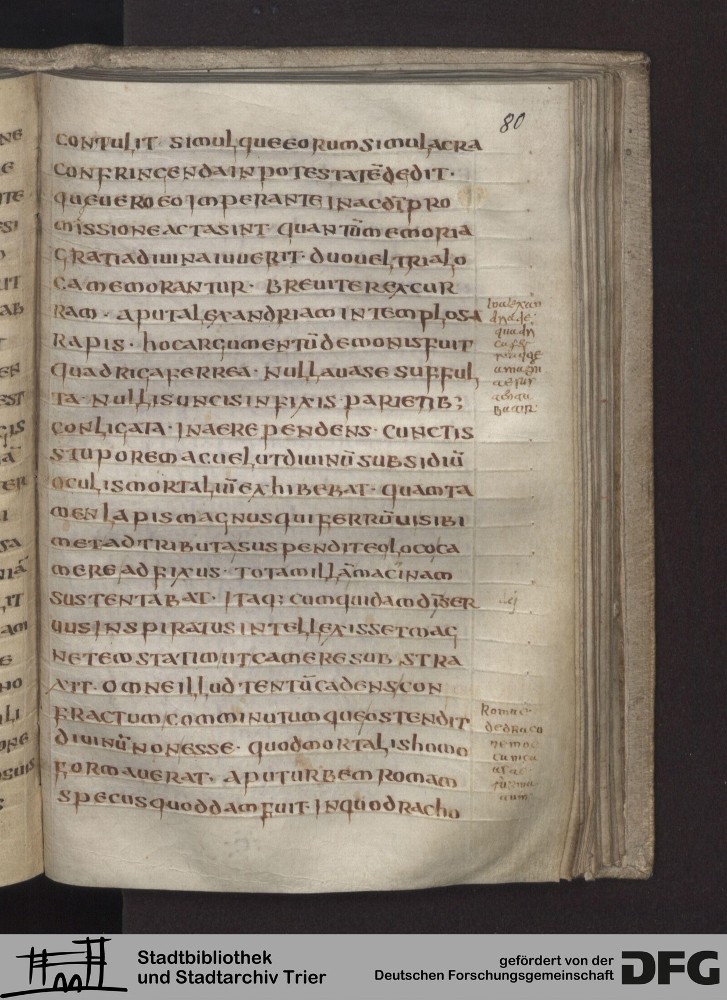 80
CONTULIT· SIMULQUEEORUMSIMULACRA
CONFRINGENDAINPOTESTATĒDEDIT·
QUEUEROEOIMPERANTEINACDĪPRO
MISSIONEACTASINT· QUANTŪMEMORIA
GRATIADIUINAIUUERIT· DUOUELTRIALO
CAMEMORANTUR· BREUITEREXCUR
RAM· APUTALEXANDRIAMINTEMPLOSA
RAPIS· HOCARGUMENTŪDEMONISFUIT
QUADRIGAFERREA· NULLAUASESUFFUL
TA· NULLISUNCISINFIXIS· PARIETIB;
CONLIGATA· INAEREPENDENS· CUNCTIS
STUPOREMACUELUTDIUINŪSUBSIDIŪ
OCULISMORTALIŪEXHIBEBAT· QUAMTA
MENLAPISMAGNUSQUIFERRŪUISIBI
METADTRIBUTASUSPENDITEOLOCOCA
MEREADFIXUS· TOTAMILLĀMACINAM
SUSTENTABAT· ITAQ; CUMQUIDAMDĪSER
UUSINSPIRATUSINTELLEXISSETMAG
NETEMSTATIMUTCAMERESUBSTRA
XIT· OMNEILLUDTENTŪCADENSCON
FRACTUMCOMMINUTUMQUEOSTENDIT
DIUINŪNONESSE· QUODMORTALISHOMO
FORMAUERAT· APUTURBEMROMAM
SPECUSQUODDAMFUIT· INQUODRACHO
Inalexan
quadri
amagn
Rome
dedraco
Stadtbibliothek
und Stadtarchiv Trier
gefördert von der
Deutschen Forschungsgemeinschaft
DFG